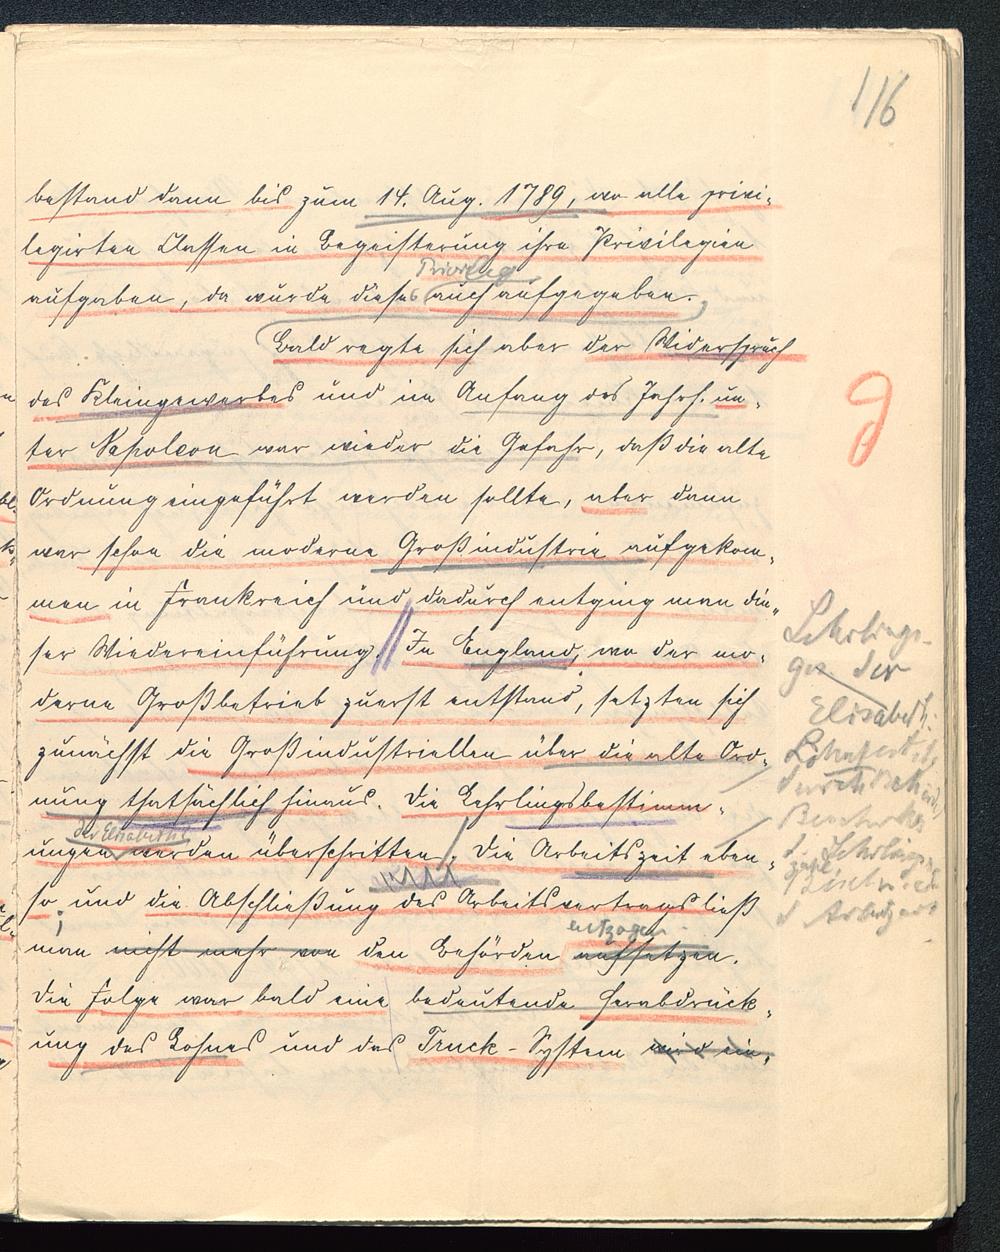 116
bestand dann bis zum 14. Aug. 1789, wo alle privi-
legirten Classen in Begeisterung ihre Privilegien
Privileg
aufgaben, da wurde dieses auch aufgegeben.
Bald regte sich aber der Widerspruch
des Kleingewerbes und im Anfang des Jahrh. un-
ter Napoleon war wieder die Gefahr, daß die alte
Ordnung eingeführt werden sollte, aber dann
war schon die moderne Großindustrie aufgekom-
men in Frankreich und dadurch entging man die-
ser Wiedereinführung. In England, wo der mo-
derne Großbetrieb zuerst entstand, setzten sich
zunächst die Großindustriellen über die alte Ord-
nung thatsächlich hinaus. Die Lehrlingsbestimm-
der Elisabeth
ungen werden überschritten. Die Arbeitszeit eben-
so und die Abschließung des Arbeitsvertrags ließ
entzogen
man nicht mehr von den Behörden aufsetzen.
Die Folge war bald eine bedeutende Herabdrück-
ung des Lohnes und das Truck-System wird ein-
Lehrlings-
der
Elisabeth